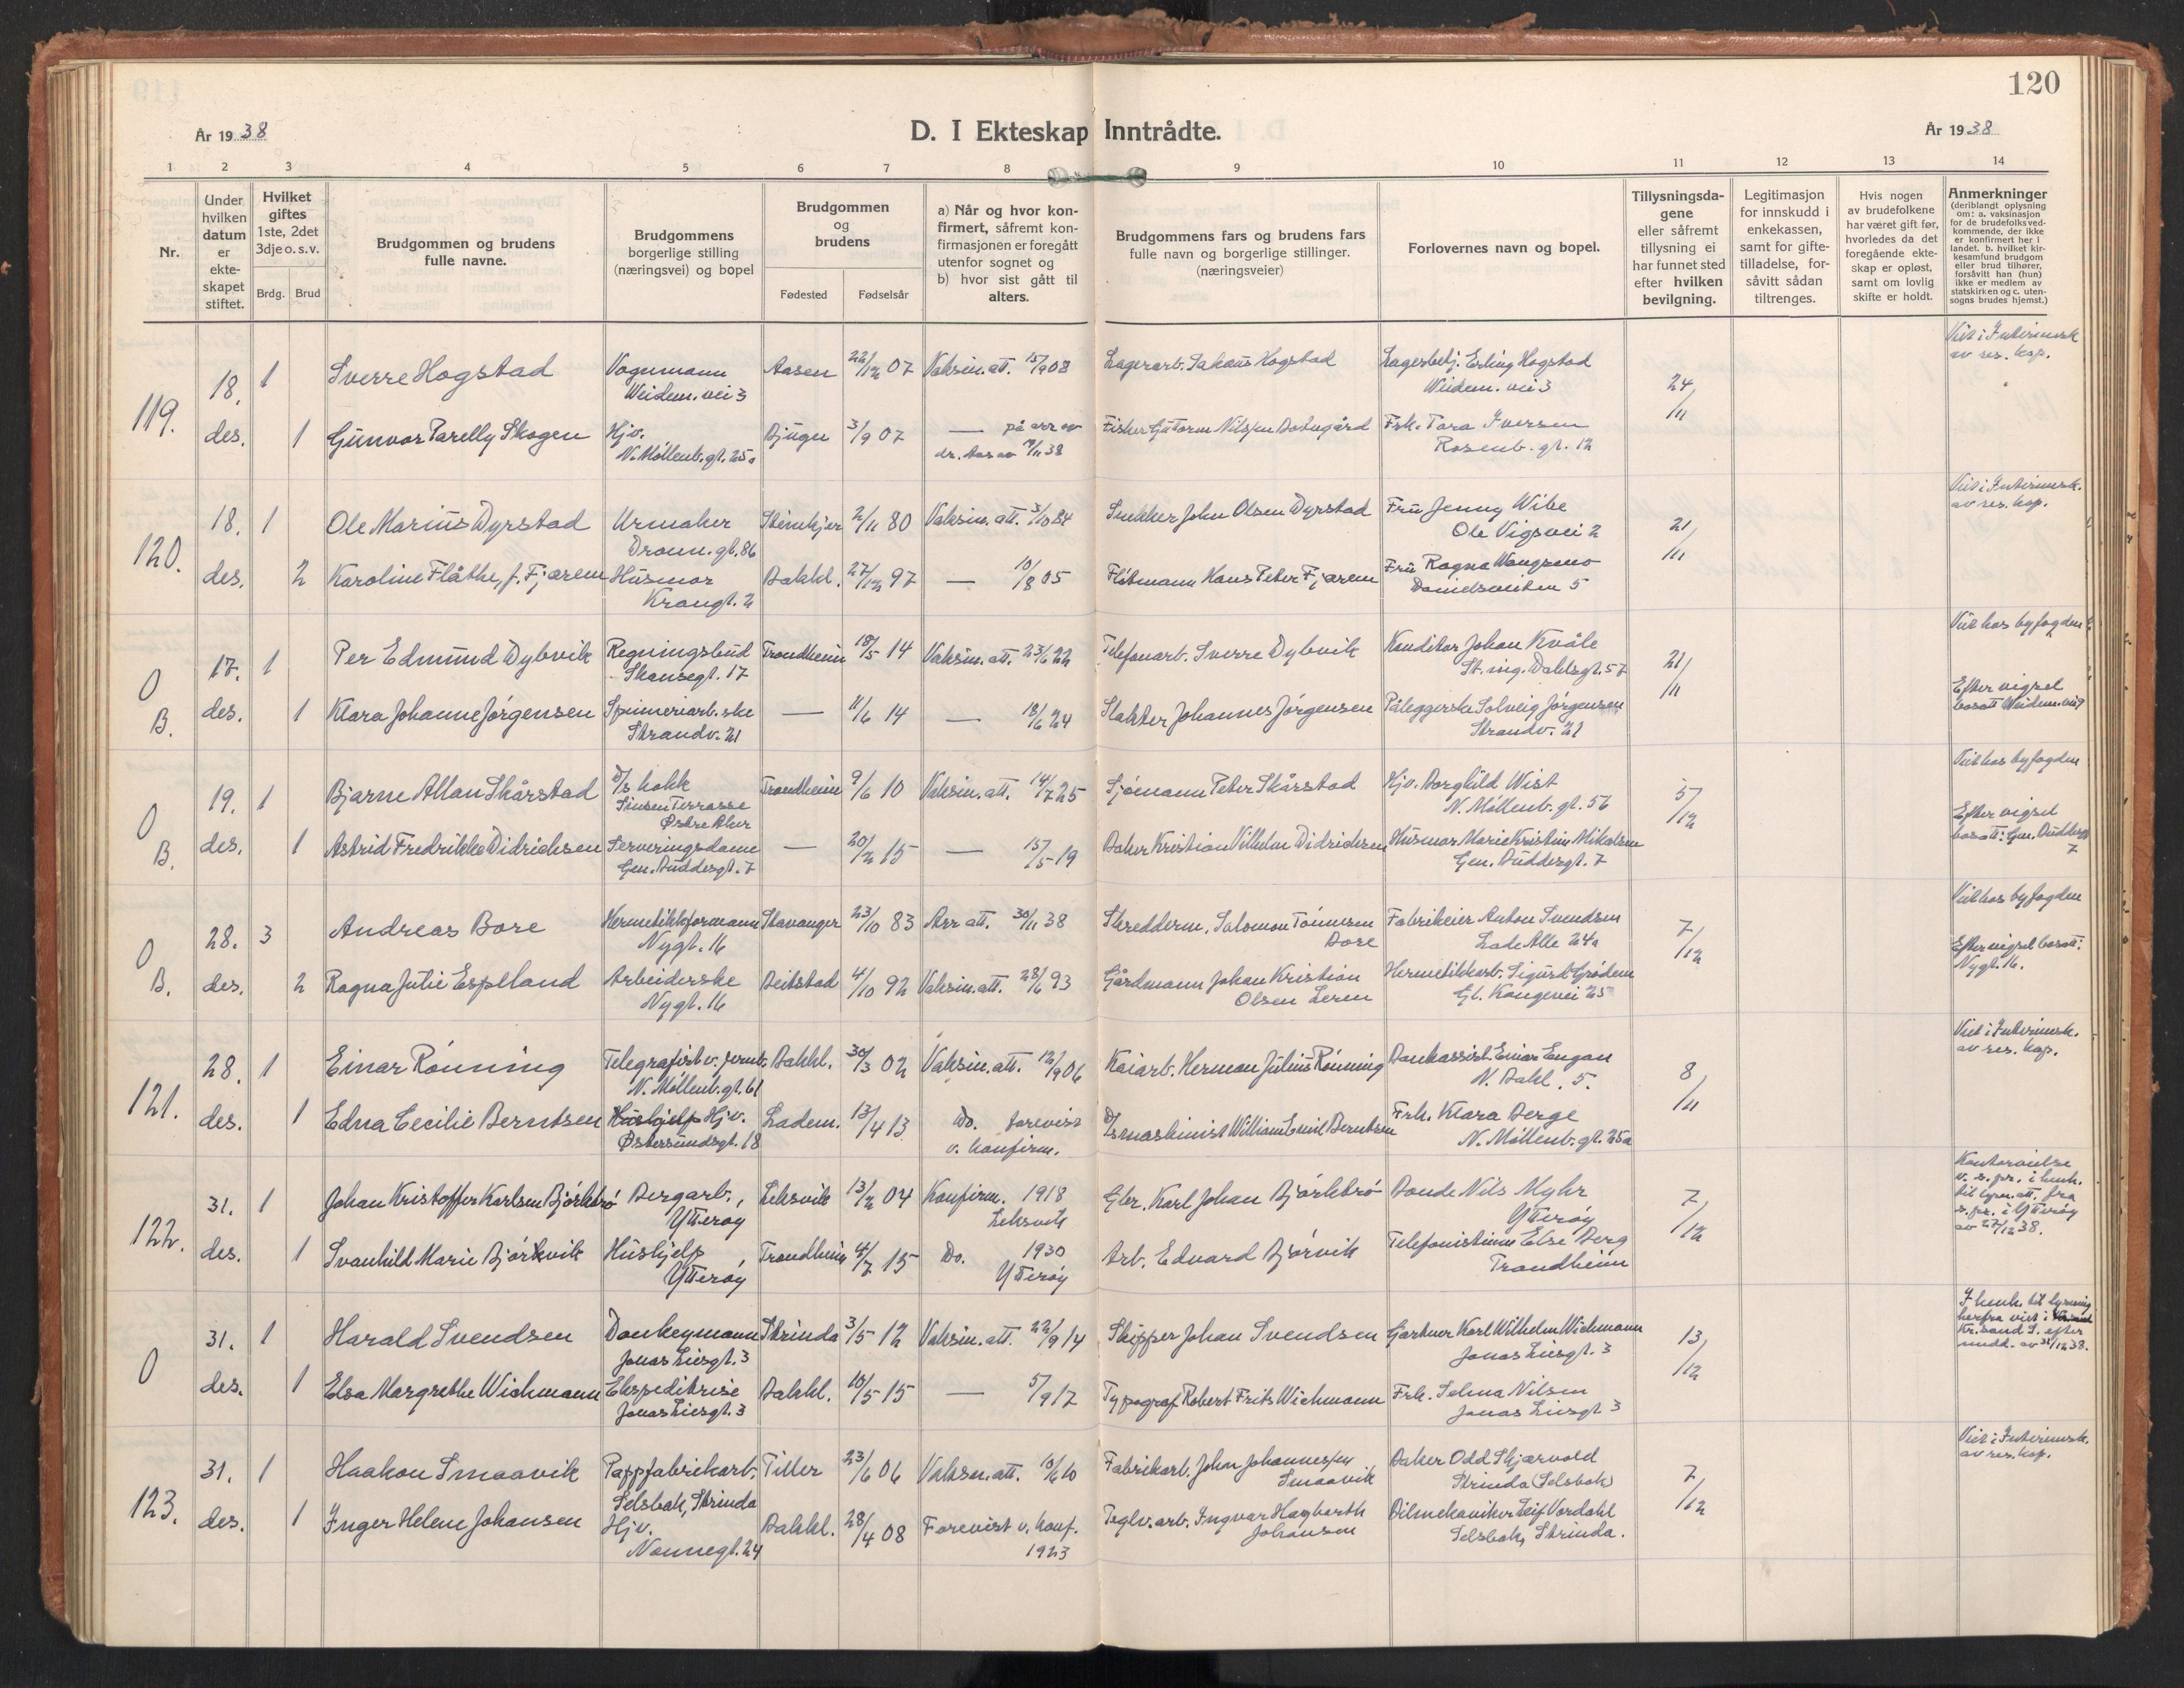 120
År 1938
D. I Ekteskap Inntrådte.
År 1938
1 2 3 4 5 6 7 8 9 10 11 12 13 14
Nr.
Under hvilken datum er ekte-skapet stiftet.
Hvilket giftes 1ste, 2det 3dje o. s. v.
Brdg. Brud
Brudgommen og brudens fulle navne.
Brudgommens borgerlige stilling (næringsvei) og bopel
Brudgommen og brudens
Fødested Fødselsår
a) Når og hvor kon-firmert, såfremt kon-firmasjonen er foregått utenfor sognet og b) hvor sist gått til alters.
Brudgommens fars og brudens fars fulle navn og borgerlige stillinger. (næringsveier)
Forlovernes navn og bopel.
Tillysningsda-gene eller såfremt tillysning ei har funnet sted efter hvilken bevilgning.
Legitimasjon for innskudd i enkekassen, samt for gifte-tilladelse, for-såvitt sådan tiltrenges.
Hvis nogen av brudefolkene har været gift før, hvorledes da det foregående ekte-skap er opløst, samt om lovlig skifte er holdt.
Anmerkninger (deriblandt oplysning om: a. vaksinasjon for de brudefolks ved-kommende, der ikke er konfirmert her i landet. b. hvilket kir-kesamfund brudgom eller brud tilhører, forsåvitt han (hun) ikke er medlem av statskirken og c. uten-sogns brudes hjemst.)
119. 18. des. 1 Sverre Hogstad Vognmann Weidem. vei 3 Aasen 22/12 07 Vaksin. att. 15/9 08 Lagerarb. Hogstad Lagerbetj. Erling Hogstad Weidem. vei 3 24/11 Viet i Interimsk. av res. kap.
1 Gunvor Parelly Skogen Hjv. N. Møllenb. gt. 25a Bjugn 3/9 07 — på arr av dr. Aas av 38 Fisker Guttorm Nilssen Frk. Tora Iversen Rosenb. gt. 12
120. 18. des. 1 Ole Marius Dyrstad Urmaker Dronn. gt. 86 Steinkjer 2/11 80 Vaksin. att. 3/10 84 Snekker John Olsen Dyrstad Fru Jenny Wibe Ole Vigsvei 2 21/11 Viet i Interimsk. av res. kap.
2 Karoline Flåthe, f. Fjærem Husmor Krangt. 2 Bakkl. 27/12 97 — 10/8 05 Fløtmann Hans Peter Fjærem Fru Ragna Wangsmo Danielsveiten 5
0 B. 17. des. 1 Per Edmund Dybvik Regningsbud Skansegt. 17 Trondheim 18/5 14 Vaksin. att. 23/6 22 Telefonarb. Sverre Dybvik Konditor Johan Kvåle St. ing. Dahlsgt. 57 21/11 Viet hos byfogden
1 Klara Johanne Jørgensen Spinneriarb.ske Strandv. 21 — 11/6 14 — 18/6 24 Slakter Johannes Jørgensen Påleggerske Solveig Jørgensen Strandv. 21 Efter vigsel bosatt Weidem. vei
0 B. 19. des. 1 Bjarne Allan Skårstad D/s kokk Sinsen Terrasse Østre Aker Trondheim 9/6 10 Vaksin. att. 14/7 25 Sjømann Peter Skårstad Hjv. Borghild Wist N. Møllenb. gt. 56 5/12 Viet hos byfogden
1 Astrid Fredrikke Didrichsen Serveringsdame Gen. Buddesgt. 7 — 20/2 15 — 15/5 19 Baker Kristian Vilhelm Didrichsen Husmor Marie Kristine Mikalsen Gen. Buddesgt. 7 Efter vigsel bosatt: Gen. Buddesgt 7
0 B. 28. des. 3 Andreas Bore Hermetikkformann Nygt. 16 Stavanger 23/10 83 Arr att. 30/11 38 Skredderm. Salomon Tønnesen Bore Fabrikeier Anton Svendsen Lade Alle 24a 7/12 Viet hos byfogden
2 Ragna Julie Espeland Arbeiderske Nygt. 16 Beitstad 4/10 92 Vaksin. att. 28/6 93 Gårdmann Johan Kristian Olsen Lerem Hermetikkarb. Sigurd Grødem Gl. Kongevei 25 Efter vigsel bosatt: Nygt. 16.
121. 28. des. 1 Einar Rønning Telegrafist v. jernb. N. Møllenb. gt. 61 Bakkl. 30/3 02 Vaksin. att. 12/9 06 Kaiarb. Herman Julius Rønning Bankassist. Einar Engan N. Bakl. 5. 8/11 Viet i Interimsk. av res. kap.
1 Edna Cecilie Berntsen Hushjelp Hjv. Østersundsgt. 18 Ladem. 13/4 13 Do. forevist v. konfirm. D/smaskinist William Emil Berntsen Frk. Klara Berge N. Møllenb. gt. 25a
122. 31. des. 1 Johan Kristoffer Karlsen Bjørkbrø Bergarb., Ytterøy Leksvik 13/2 04 Konfirm. 1918 Leksvik Gbr. Karl Johan Bjørkbrø Bonde Nils Myhr Ytterøy 7/12 Kontorvielse v. s.pr. i henh. til lysn. att. fra s.pr. i Ytterøy av 27/12 38.
1 Svanhild Marie Bjørkvik Hushjelp Ytterøy Trondheim 4/7 15 Do. 1930 Ytterøy Arb. Edvard Bjørvik Telefonistinne Else Berg Trondheim
0 31. des. 1 Harald Svendsen Donkeymann Jonas Liesgt. 3 Strinda 3/5 12 Vaksin. att. 22/9 14 Skipper Johan Svendsen Gartner Karl Wilhelm Wichmann Jonas Liesgt. 3 13/12 I henh. til lysning herfra viet i Kr.sand S. efter medd. av 31/12 38.
1 Elsa Margrethe Wichmann Ekspeditrise Jonas Liesgt. 3 Bakkl. 10/5 15 — 5/9 17 Typograf Robert Frits Wichmann Frk. Selma Nilsen Jonas Liesgt 3
123. 31. des. 1 Haakon Smaavik Pappfabrikarb. Selsbak, Strinda Tiller 23/6 06 Vaksn. att. 10/6 10 Fabrikarb. John Johannessen Smaavik Baker Odd Skjærvold Strinda (Selsbak) 7/12 Viet i Interimsk. av res. kap.
1 Inger Helene Johansen Hjv. Nonnegt. 24 Bakkl. 28/4 08 Forevist v. konf. 1923 Teglv.arb. Ingvar Hagbarth Johansen Bilmekaniker Leif Vordahl Selsbak, Strinda.